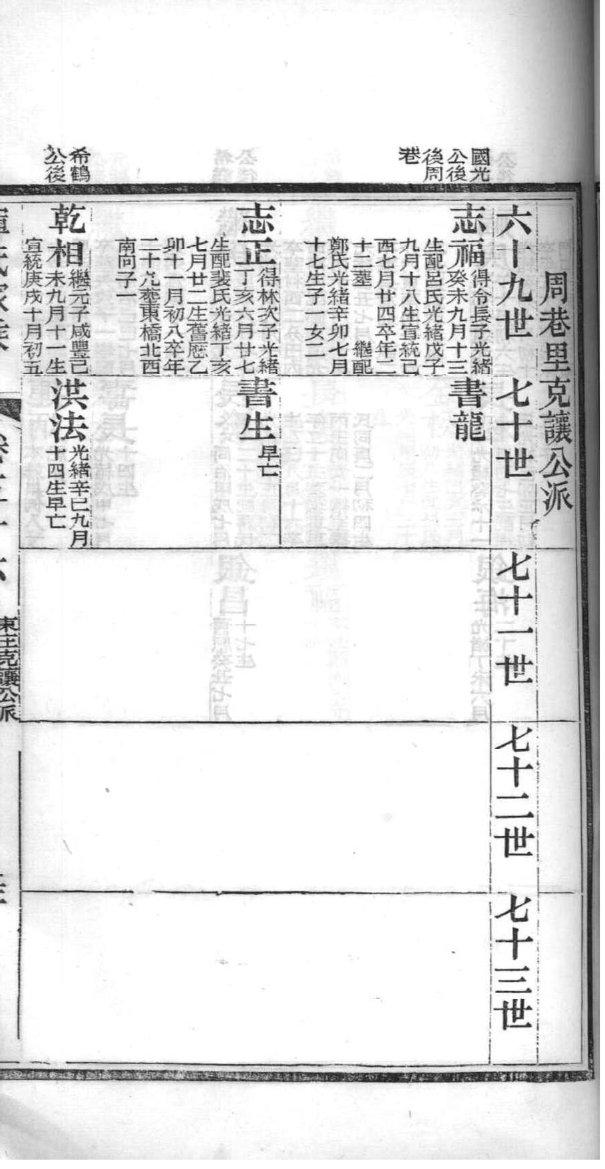 周巷里克讓公派
六十九世
七十世
七十一世
七十二世
七十三世
國光
公後
後周
巷
志福
得令長子光緒
癸未九月十三
生配呂氏光緒戊子
九月十八生宣統己
酉七月廿四卒年二
十二塟 繼配
鄭氏光緒辛卯七月
十七生子一女二
書龍
志正
得林次子光緒
丁亥六月廿七
生配裴氏光緒丁亥
七月廿二生舊厯乙
卯十一月初八卒年
二十九塟東橋北西
南向子一
書生
早亡
希鶴
公後
乾相
繼元子咸豐己
未九月十一生
宣統庚戌十月初五
洪法
光緒辛巳九月
十四生早亡
東王克讓公派